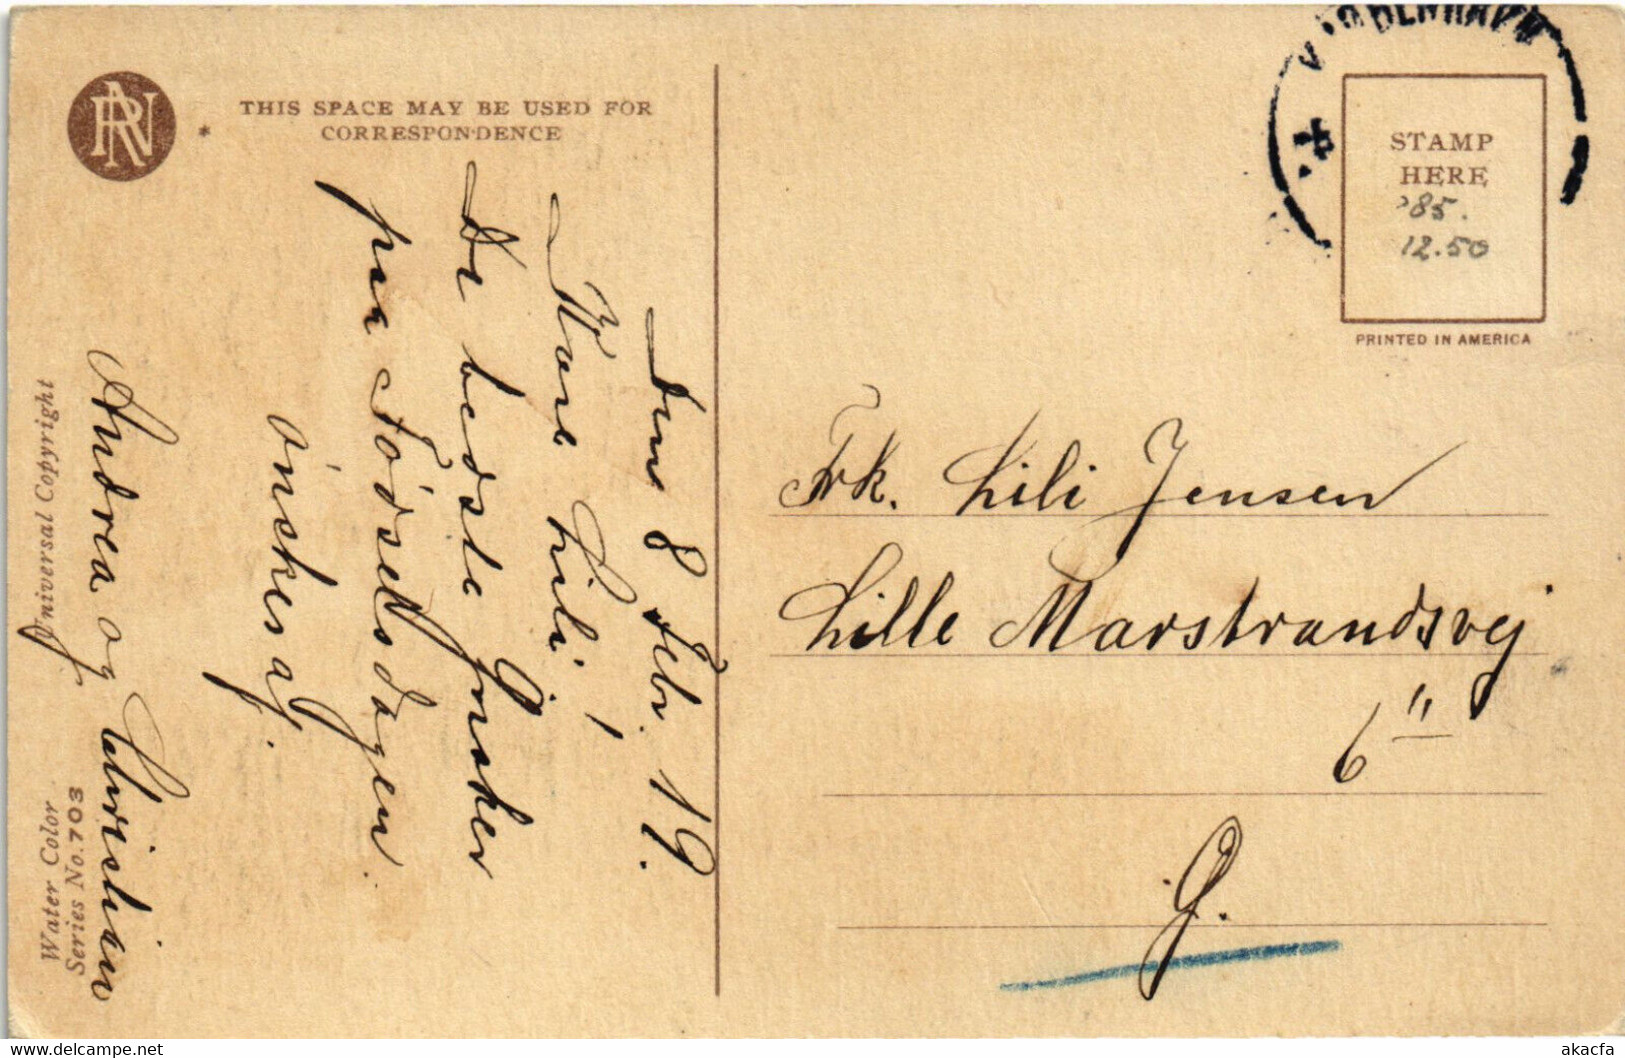 RN
THIS SPACE MAY BE USED FOR
CORRESPONDENCE
Den 8 Febr. 19.
Kære Lili!
De bedste Ønsker
paa Fødselsdagen
ønskes af.
Andrea og Christian
Universal Copyright
Water Color
Series No. 703
KJØBENHAVN
STAMP
HERE
'85.
12.50
PRINTED IN AMERICA
Frk. Lili Jensen
Lille Marstrandsvej
6"
G.
www.delcampe.net
akacfa